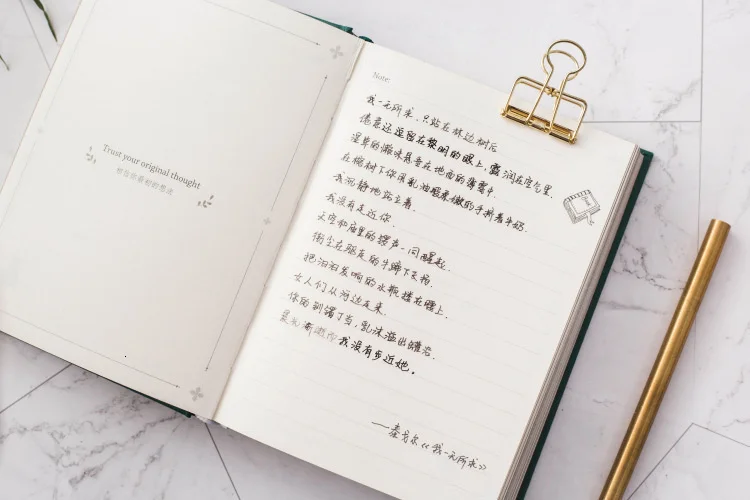 Trust your original thought
相信你最初的想法
Note:
我一无所求,只站在林边树后
倦意还逗留在黎明的眼上,露润在空气里.
湿草的懒味悬垂在地面的薄雾中.
在榕树下你用乳油般柔嫩的手挤着牛奶.
我沉静地站立着.
我没有走近你.
天空和庙里的锣声一同醒起.
街尘在驱走的牛蹄下飞扬.
把汩汩发响的水瓶搂在腰上.
女人们从河边走来.
你的钏镯丁当,乳沫溢出罐沿.
晨光渐逝而我没有步近她.
——泰戈尔《我一无所求》